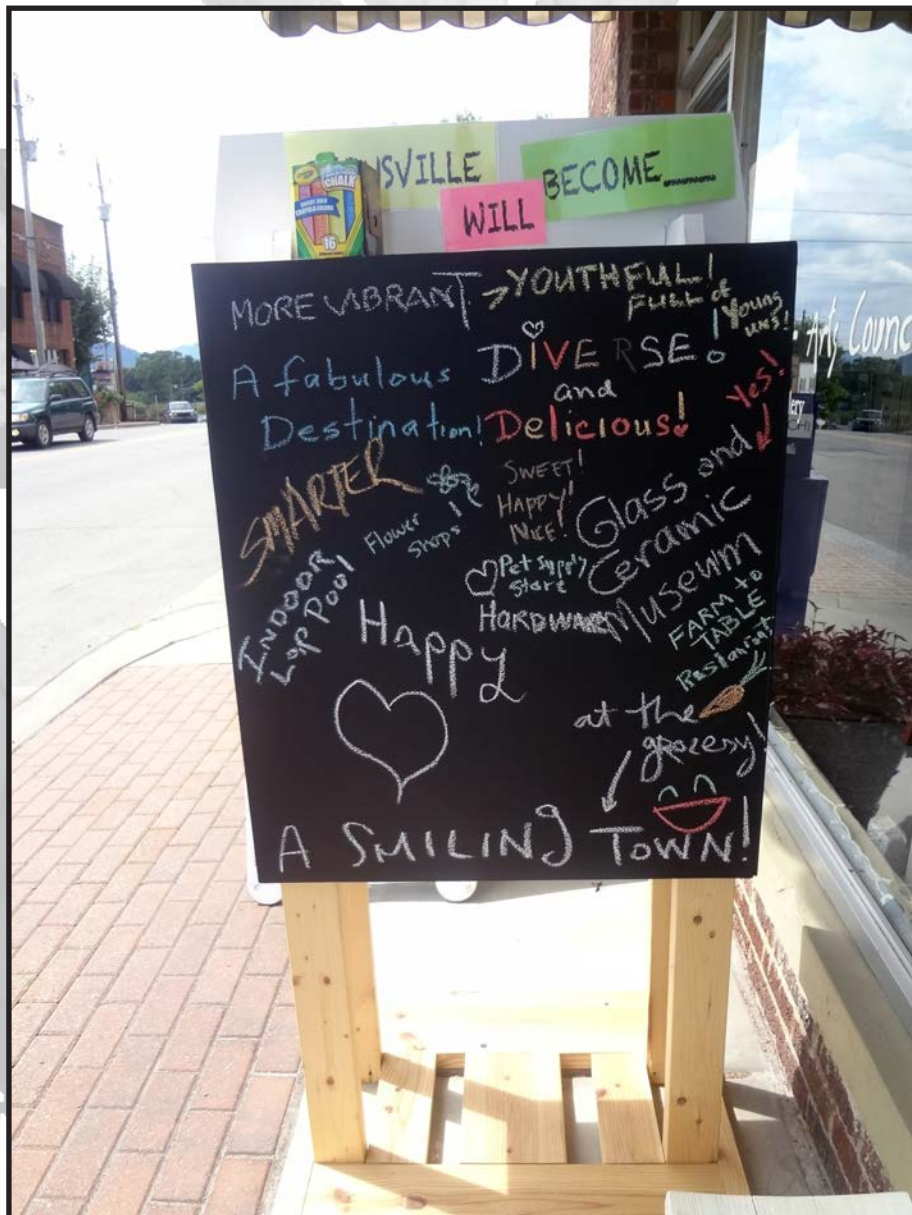 SVILLE
WILL
BECOME......
CHALK
16
MORE VIBRANT
YOUTHFUL!
FULL of
Young
uns!
A fabulous
Destination!
DIVERSE!
and
Delicious!
Yes!
SMARTER
Flower
Shops
SWEET!
HAPPY!
NICE!
Glass and
Ceramic
Museum
Pet Supply
Store
HARDWARE
INDOOR
Lap Pool
Happy
FARM to
TABLE
Restaurant
at the
grocery!
A SMILING TOWN!
Arts Counc